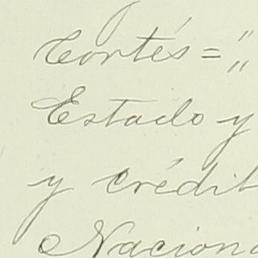 Cortés = "
Estado y
y crédit
Naciona